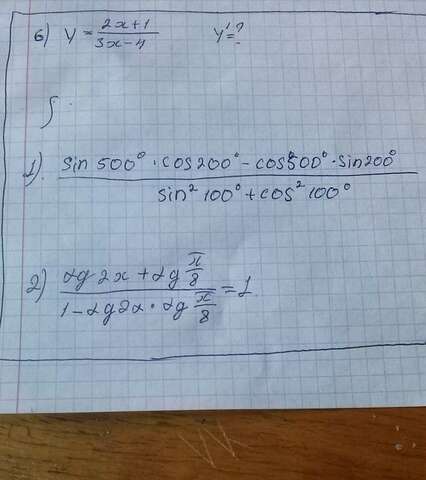 6) y = \frac{2x+1}{3x-4} y'=?
∫
1). \frac{sin 500° · cos 200° - cos 500° · sin 200°}{sin² 100° + cos² 100°}
2) \frac{tg 2x + tg \frac{π}{8}}{1 - tg 2x · tg \frac{π}{8}} = 1